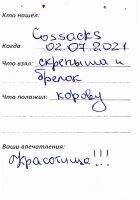 Кто нашёл:
Cossacks
Когда 02.07.2021
Что взял: скрепыша и
брелок
Что положил: корову
Ваши впечатления:
Красотища!!!